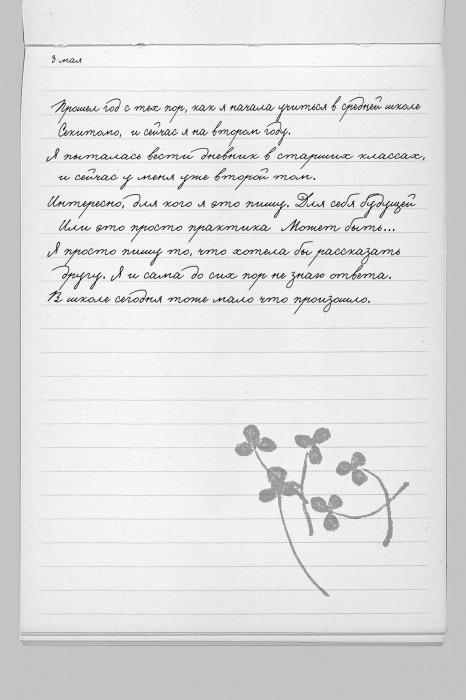 3 мая
Прошел год с тех пор, как я начала учиться в средней школе
Секитомо, и сейчас я на втором году.
Я пыталась вести дневник в старших классах,
и сейчас у меня уже второй том.
Интересно, для кого я это пишу. Для себя будущей
Или это просто практика Может быть...
Я просто пишу то, что хотела бы рассказать
другу. Я и сама до сих пор не знаю ответа.
В школе сегодня тоже мало что произошло.